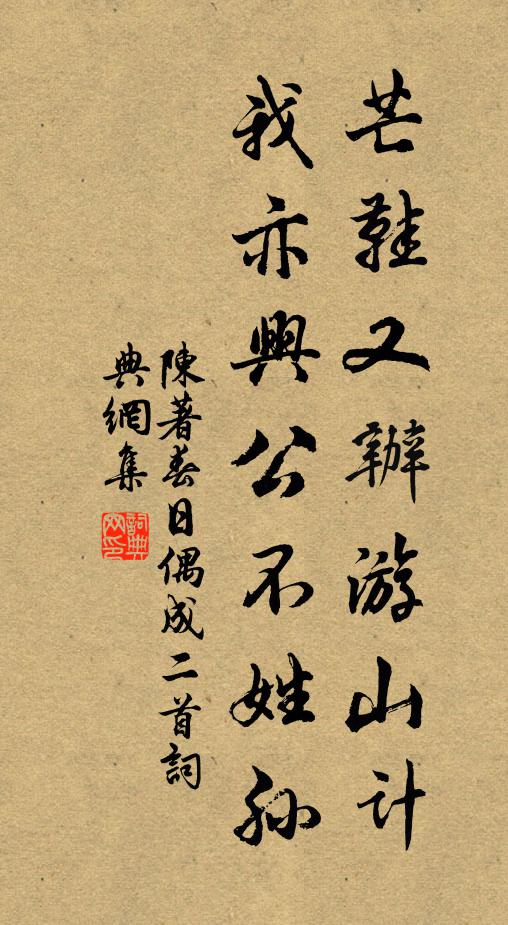 芒鞋又辦游山計
我亦興公不姓孫
陳著春日偶成二首詞
典網集
詞典網印